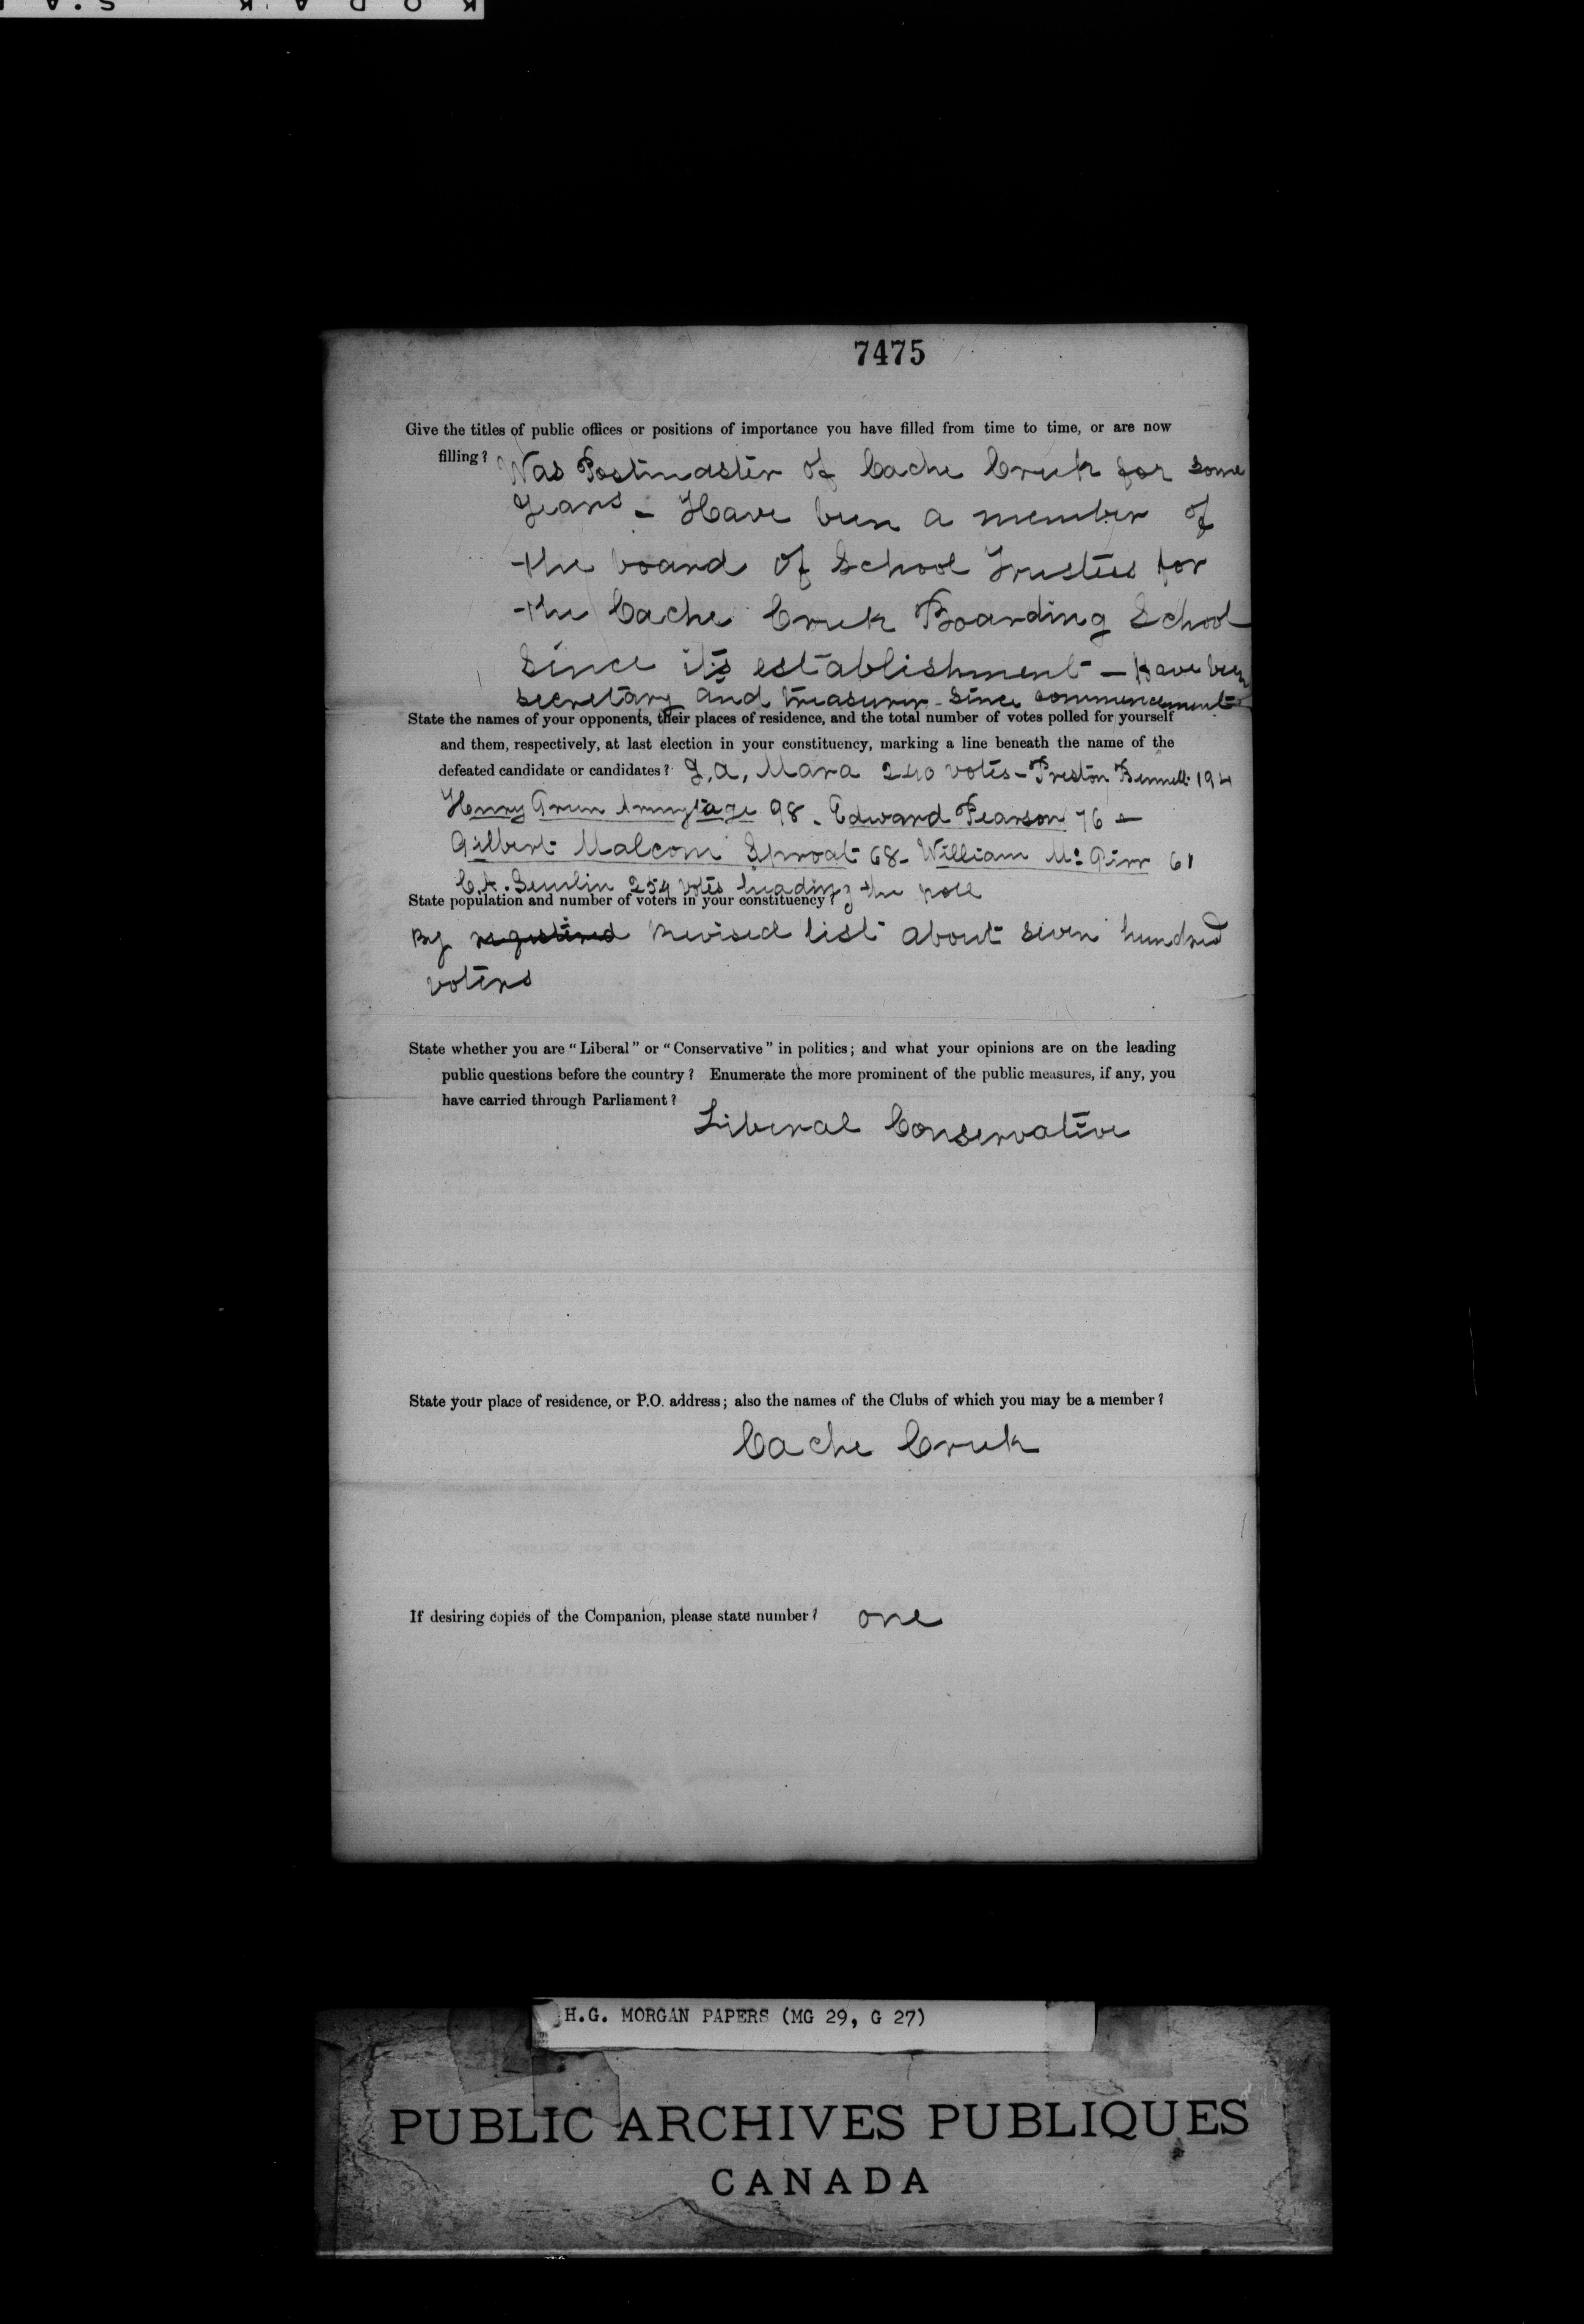 KODAK S.A
7475
Give the titles of public offices or positions of importance you have filled from time to time, or are now
filling?
Was Postmaster of Cache Creek for some
years - Have been a member of
the board of School Trustees for
the Cache Creek Boarding School
since its establishment - Have been
secretary and treasurer - since commencement
State the names of your opponents, their places of residence, and the total number of votes polled for yourself
and them, respectively, at last election in your constituency, marking a line beneath the name of the
defeated candidate or candidates? J. A. Mara 240 votes - Preston Bennett 194
Henry Green Armytage 98 - Edward Pearson 76 -
Gilbert Malcom Sproat 68 - William Mc Girr 61
C. A. Semlin 254 votes heading the poll
State population and number of voters in your constituency?
By registered revised list about seven hundred
voters
State whether you are "Liberal" or "Conservative" in politics; and what your opinions are on the leading
public questions before the country? Enumerate the more prominent of the public measures, if any, you
have carried through Parliament?
Liberal Conservative
State your place of residence, or P.O. address; also the names of the Clubs of which you may be a member?
Cache Creek
If desiring copies of the Companion, please state number? one
H.G. MORGAN PAPERS (MG 29, G 27)
PUBLIC ARCHIVES PUBLIQUES
CANADA